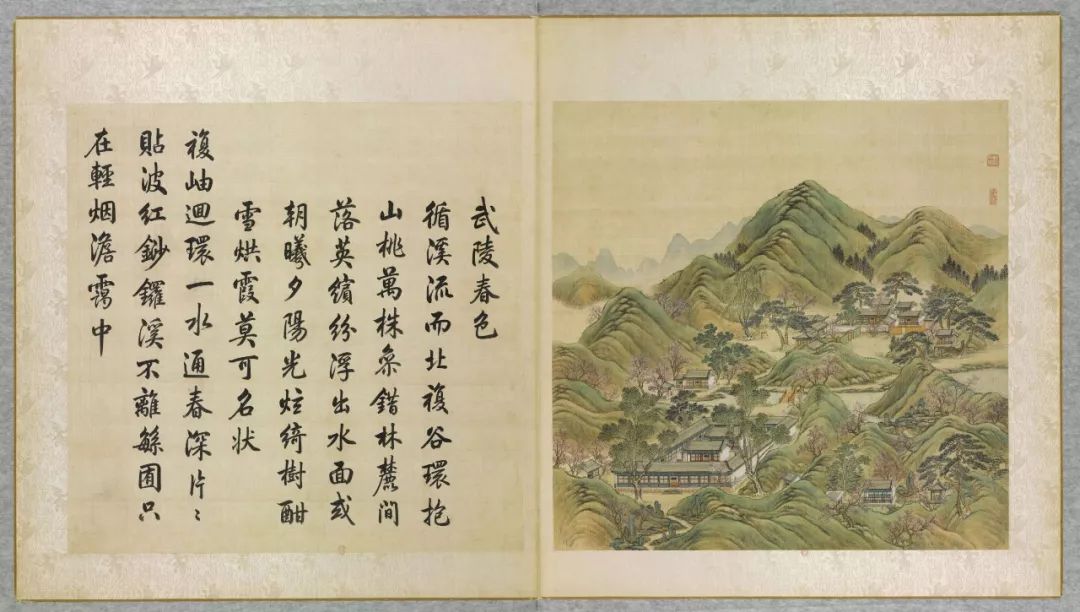 武陵春色
循溪流而北複谷環抱
山桃萬株叅錯林麓間
落英繽紛浮出水面或
朝曦夕陽光炫綺樹酣
雪烘霞莫可名狀
複岫迴環一水通春深片〻
貼波紅鈔鑼溪不離緐囿只
在輕烟澹靄中